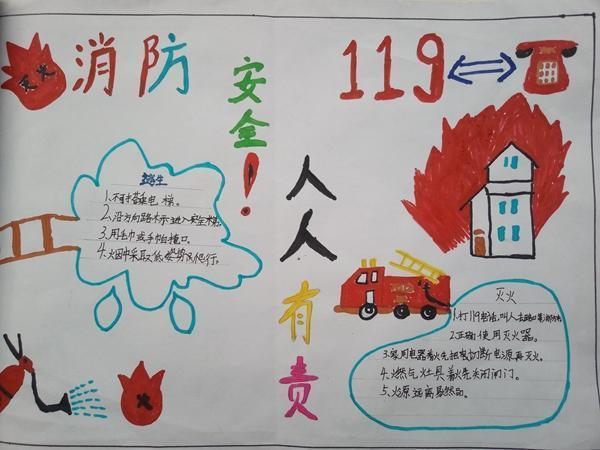 灭火
消防
安全！
119
人人有责
逃生
1、不可搭乘电梯。
2、沿方向路标示进入安全梯。
3、用毛巾或手帕掩口。
4、烟中采取低姿势爬行。
火
灭火
1、打119电话,叫人去路口
2、正确使用灭火器。
3、家用电器着火先把切断电源再灭火。
4、燃气灶具着火先关闭闭门。
5、火源远离易燃品。